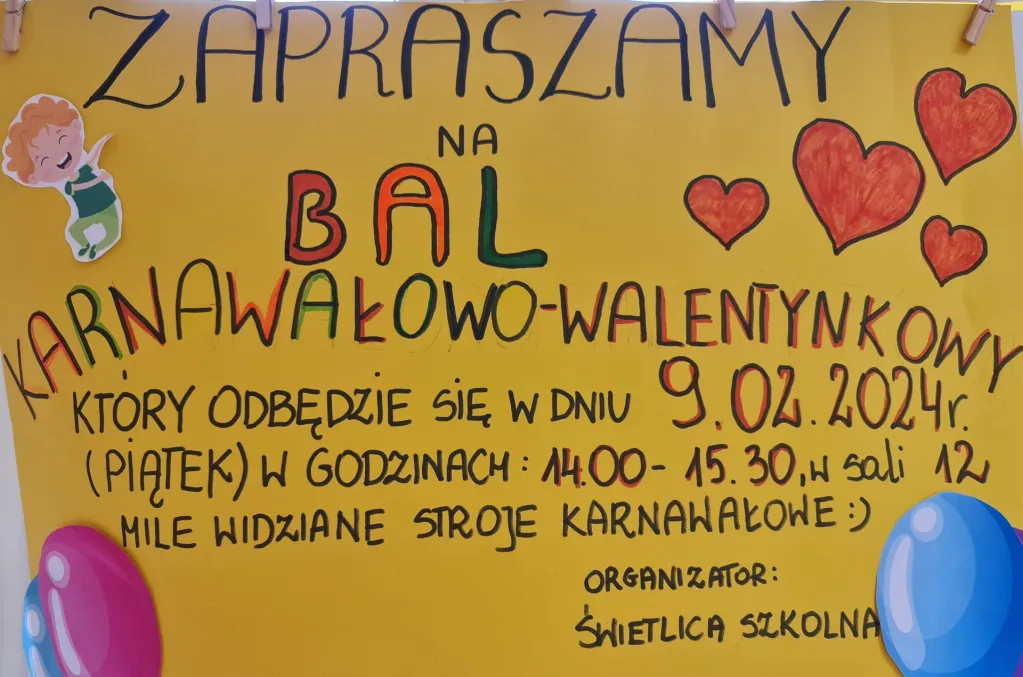 ZAPRASZAMY
NA
BAL
KARNAWAŁOWO-WALENTYNKOWY
KTÓRY ODBĘDZIE SIĘ W DNIU 9.02.2024r.
(PIĄTEK) W GODZINACH: 14.00- 15.30, w sali 12
MILE WIDZIANE STROJE KARNAWAŁOWE :)
ORGANIZATOR:
ŚWIETLICA SZKOLNA